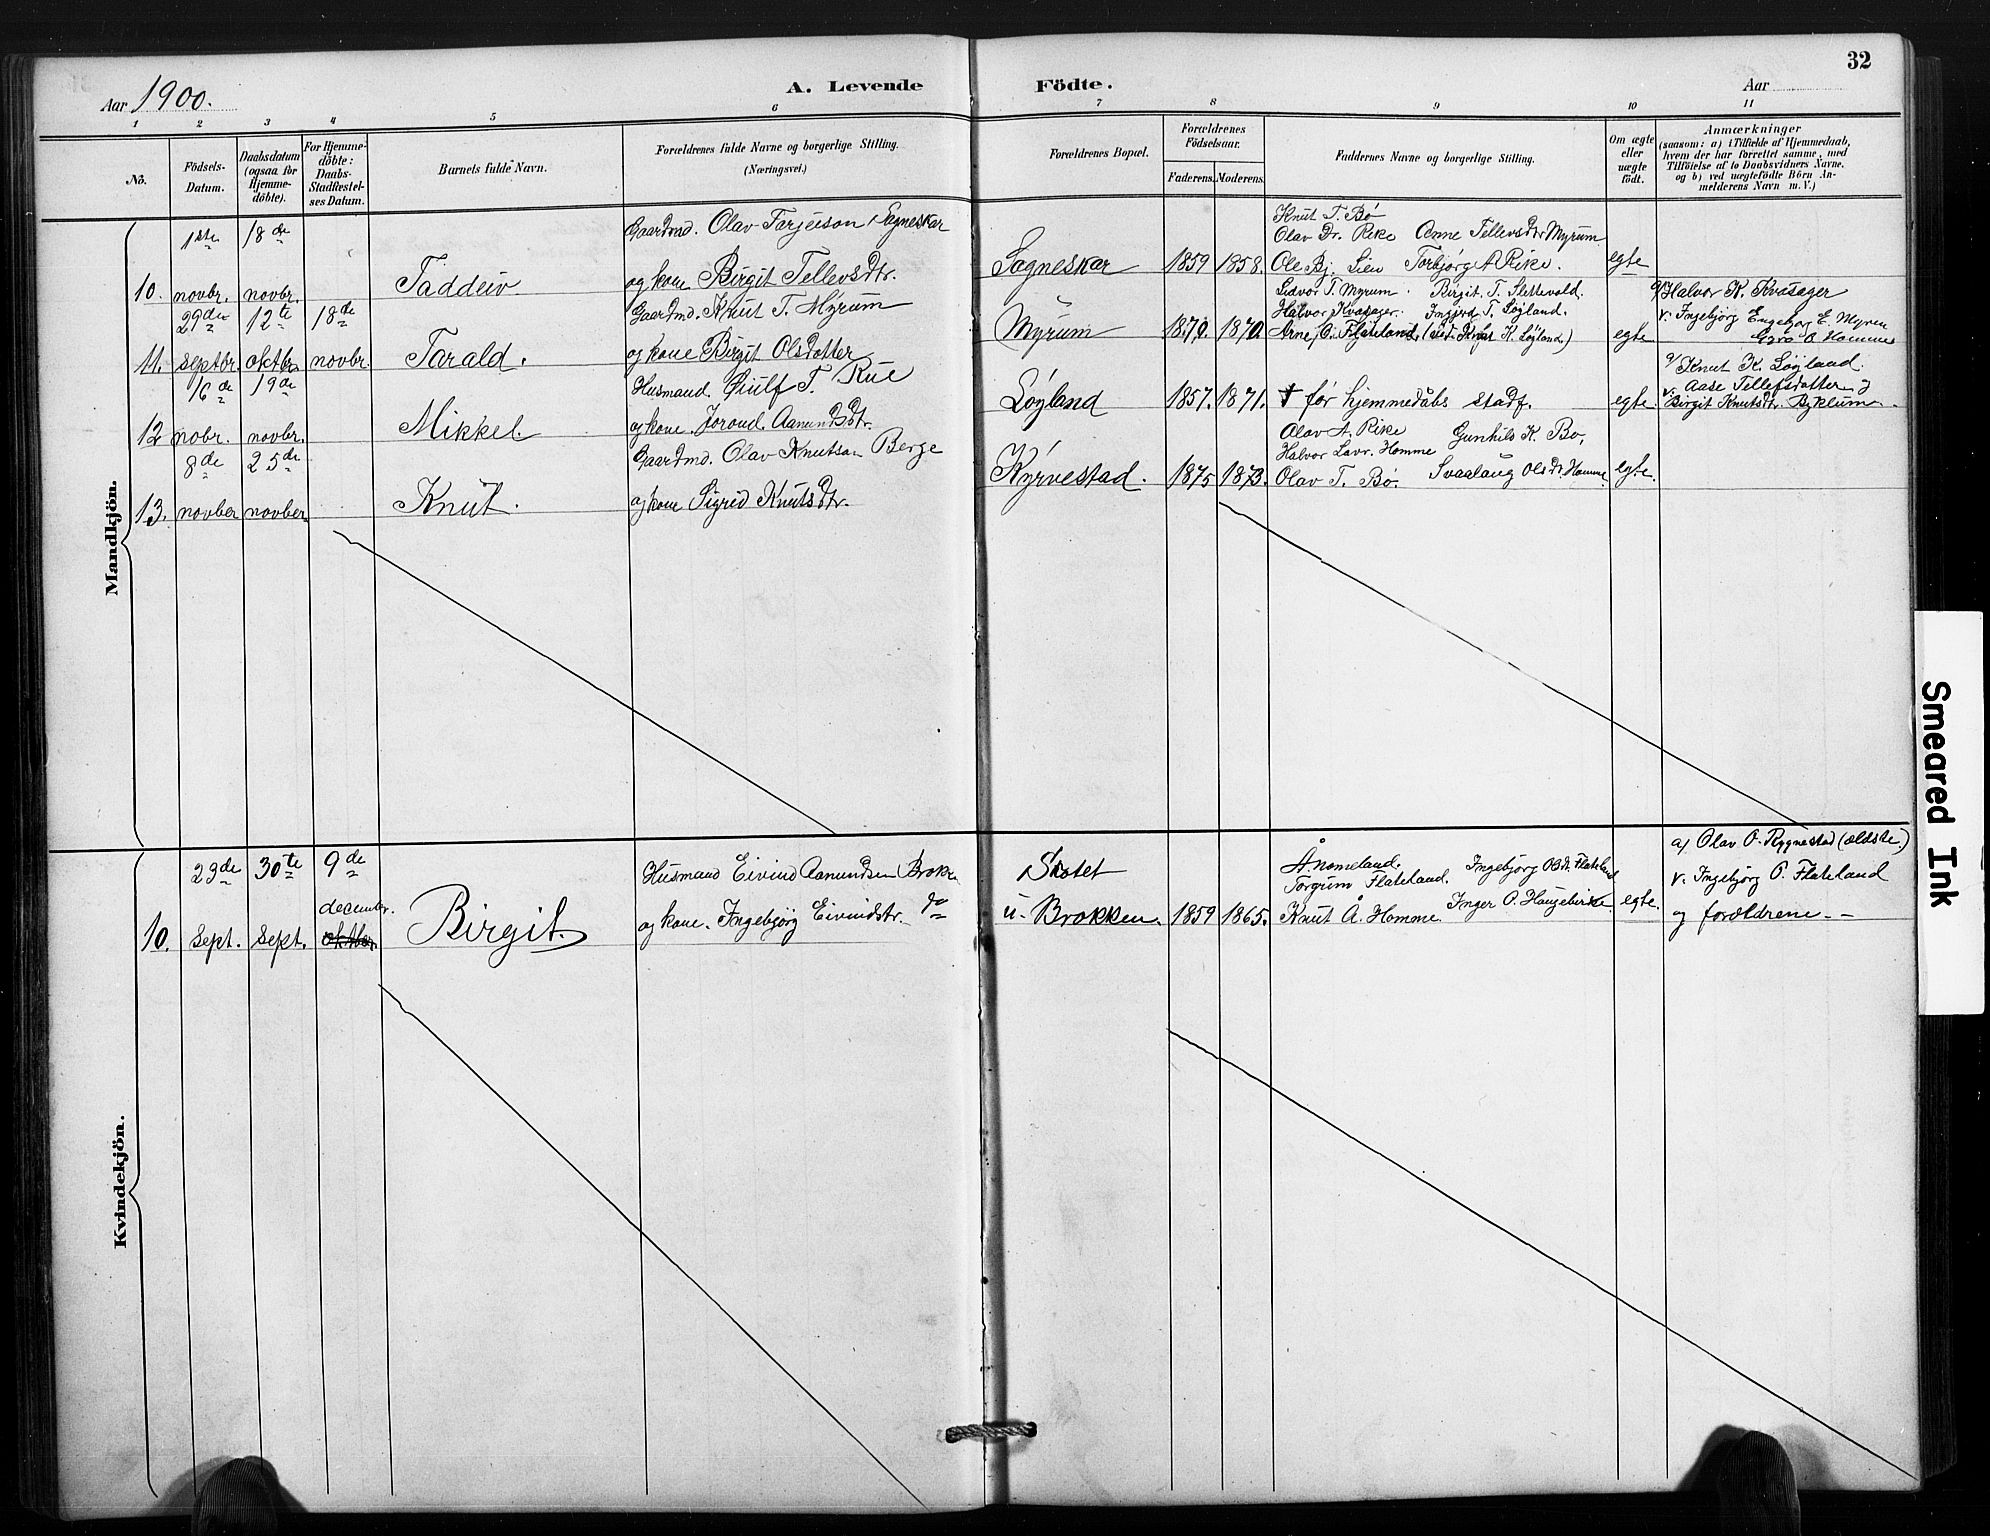 32
Aar 1900.
A. Levende
Födte.
Aar
1
2
3
4
5
6
7
8
9
10
11
No.
Födsels-
Datum.
Daabsdatum
(ogsaa for
Hjemme-
döbte).
For Hjemme-
döbte:
Daabs-
Stadfæstel-
ses Datum.
Barnets fulde Navn.
Forældrenes fulde Navne og borgerlige Stilling.
(Næringsvei.)
Forældrenes Bopæl.
Forældrenes
Födselsaar.
Faderens.
Moderens.
Faddernes Navne og borgerlige Stilling.
Om ægte
eller
uægte
födt.
Anmærkninger
(saasom: a) i Tilfælde af Hjemmedaab,
hvem der har forrettet samme, med
Tilföielse af to Daabsvidners Navne,
og b) ved uægtefödte Börn An-
melderens Navn m. V.)
Mandkjön.
10.
1ste
novbr.
18de
novbr.
Taddeiv
Gaardmd. Olav Tarjeison Sagneskar
og kone Birgit Tellevsdtr.
Sagneskar
1859
1858.
Knut T. Bø
Olav Dr. Rike Anne Tellevsdtr Myrum
Ole Bj. Lien Torbjørg A Rike.
egte
11.
29de
septbr.
12te
oktbr
18de
novbr.
Tarald.
Gaardmd. Knut T. Myrum
og kone Birgit Olsdotter
Myrum
1870.
1870.
Lidvor T. Myrum. Birgit T. Slettevold.
Halvor Kvasager. Ingjerd T. Løyland.
Arne O. Flateland.
egte
Halvor K. Kvasager
v. Ingebjörg Engebjorg E. Myren
Gyro O Homme
12
16de
nobr.
19de
novbr.
Mikkel.
Husmand. T. Rue
og kone. Joroud. Aamundsdtr.
Løyland
1857.
1871.
† før hjemmedåbs stadf.
egte.
Knut K. Løyland.
v. Aase Tellefsdatter og
Birgit Knutsdtr. Byklum.
13.
8de
novber
25de
novber
Knut.
Gaardmd. Olav Knutson Berge
og kone Sigrid Knutsdtr.
Kyrvestad.
1875
1873.
Olav A. Rike Gunhild K. Bø,
Halvor Lavr. Homme
Olav T. Bø. Svaalaug Olsdtr Homme.
egte.
Kvindekjön.
10.
23de
sept.
30te
sept.
9de
decembr.
oktber.
Birgit.
Husmand Eivind Aamundsen Brokke
og kone. Ingebjørg Eivindstr. do
Slotet
u. Brokken.
1859
1865.
Å. nomeland.
Torgrim Flateland. Ingebjørg Olsdtr Flateland
Knut Å. Homme Inger O. Haugebirke
egte.
a) Olav O. Rygnestad (ældste.)
v. Ingebjørg O. Flateland
og forældrene. —
Smeared Ink